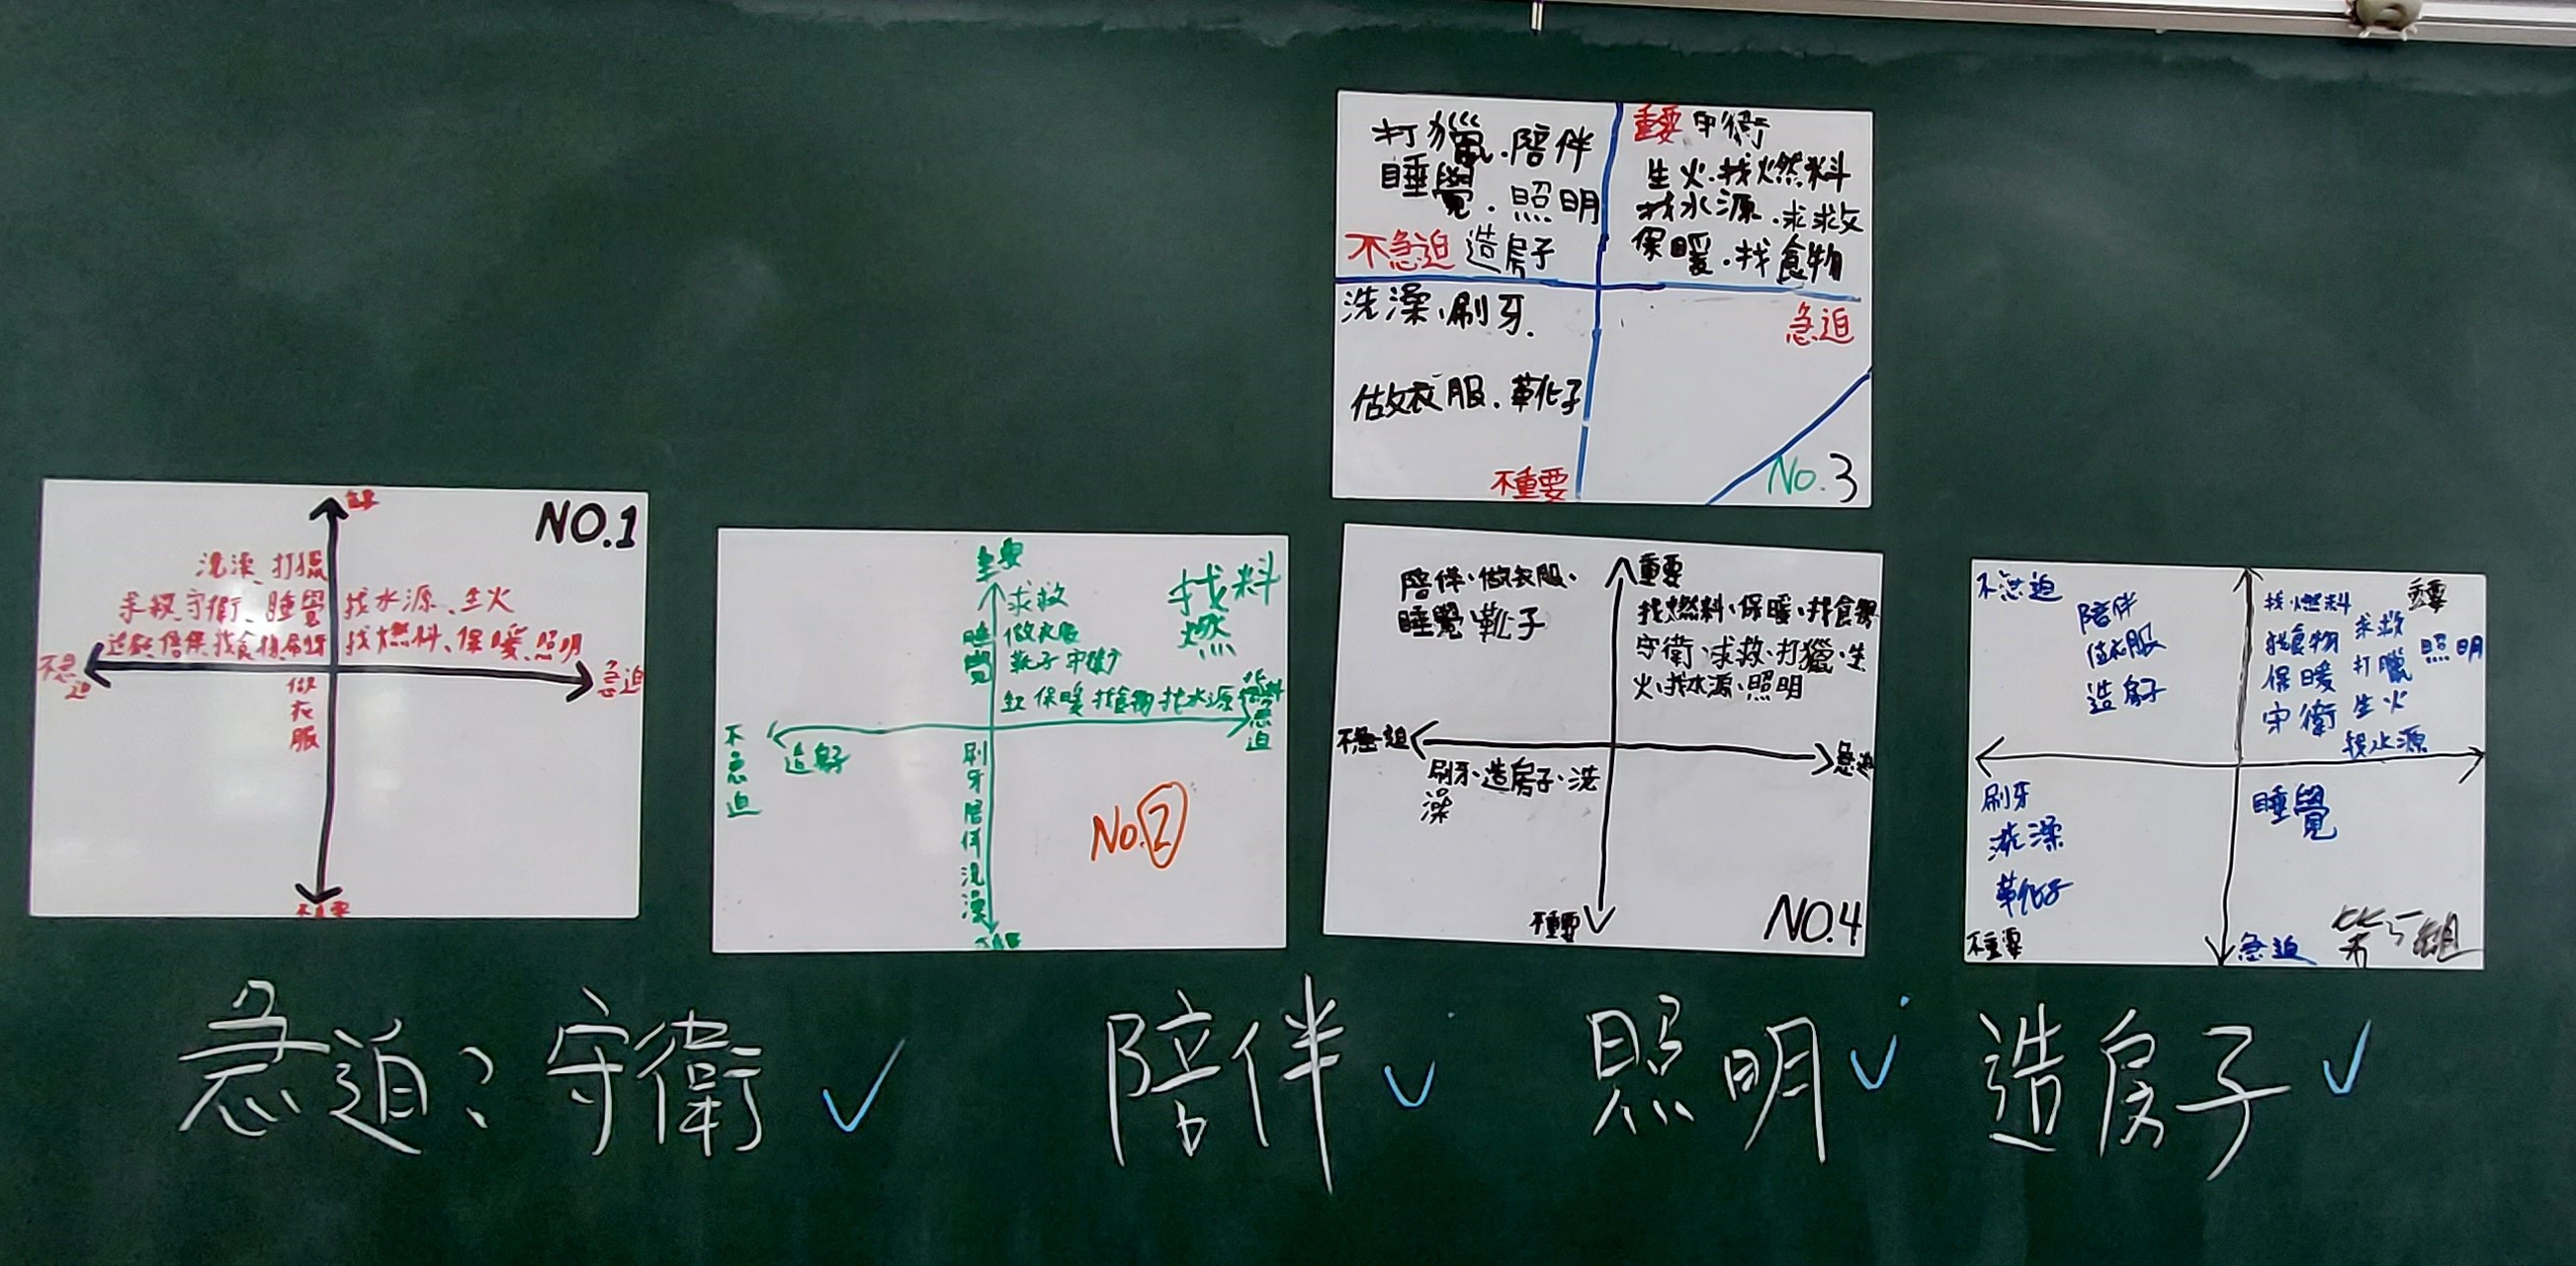 NO.1
洗澡、打獵
求救、守衛、睡覺
找水源、生火
找燃料、保暖、照明
不急迫
急迫
做衣服
重要
求救
找燃料
做衣服
睡覺
靴子 守衛
保暖 找食物 找水源
急迫
不急迫
造房子
刷牙陪伴洗澡
No.2
打獵.陪伴
睡覺.照明
不急迫 造房子
重要 守衛
生火.找燃料
找水源.求救
保暖.找食物
急迫
洗澡、刷牙.
做衣服.靴子
不重要
No.3
陪伴、做衣服、
睡覺、靴子
重要
找燃料、保暖、找食物
守衛、求救、打獵、生
火、找水源、照明
不急迫
急迫
刷牙、造房子、洗
澡
不重要
NO.4
不急迫
陪伴
做衣服
造房子
重要
找燃料
找食物
保暖
守衛
求救
打獵
生火
找水源
照明
刷牙
洗澡
靴子
睡覺
不重要
急迫
急迫?守衛 ✓ 陪伴 ✓ 照明 ✓ 造房子 ✓